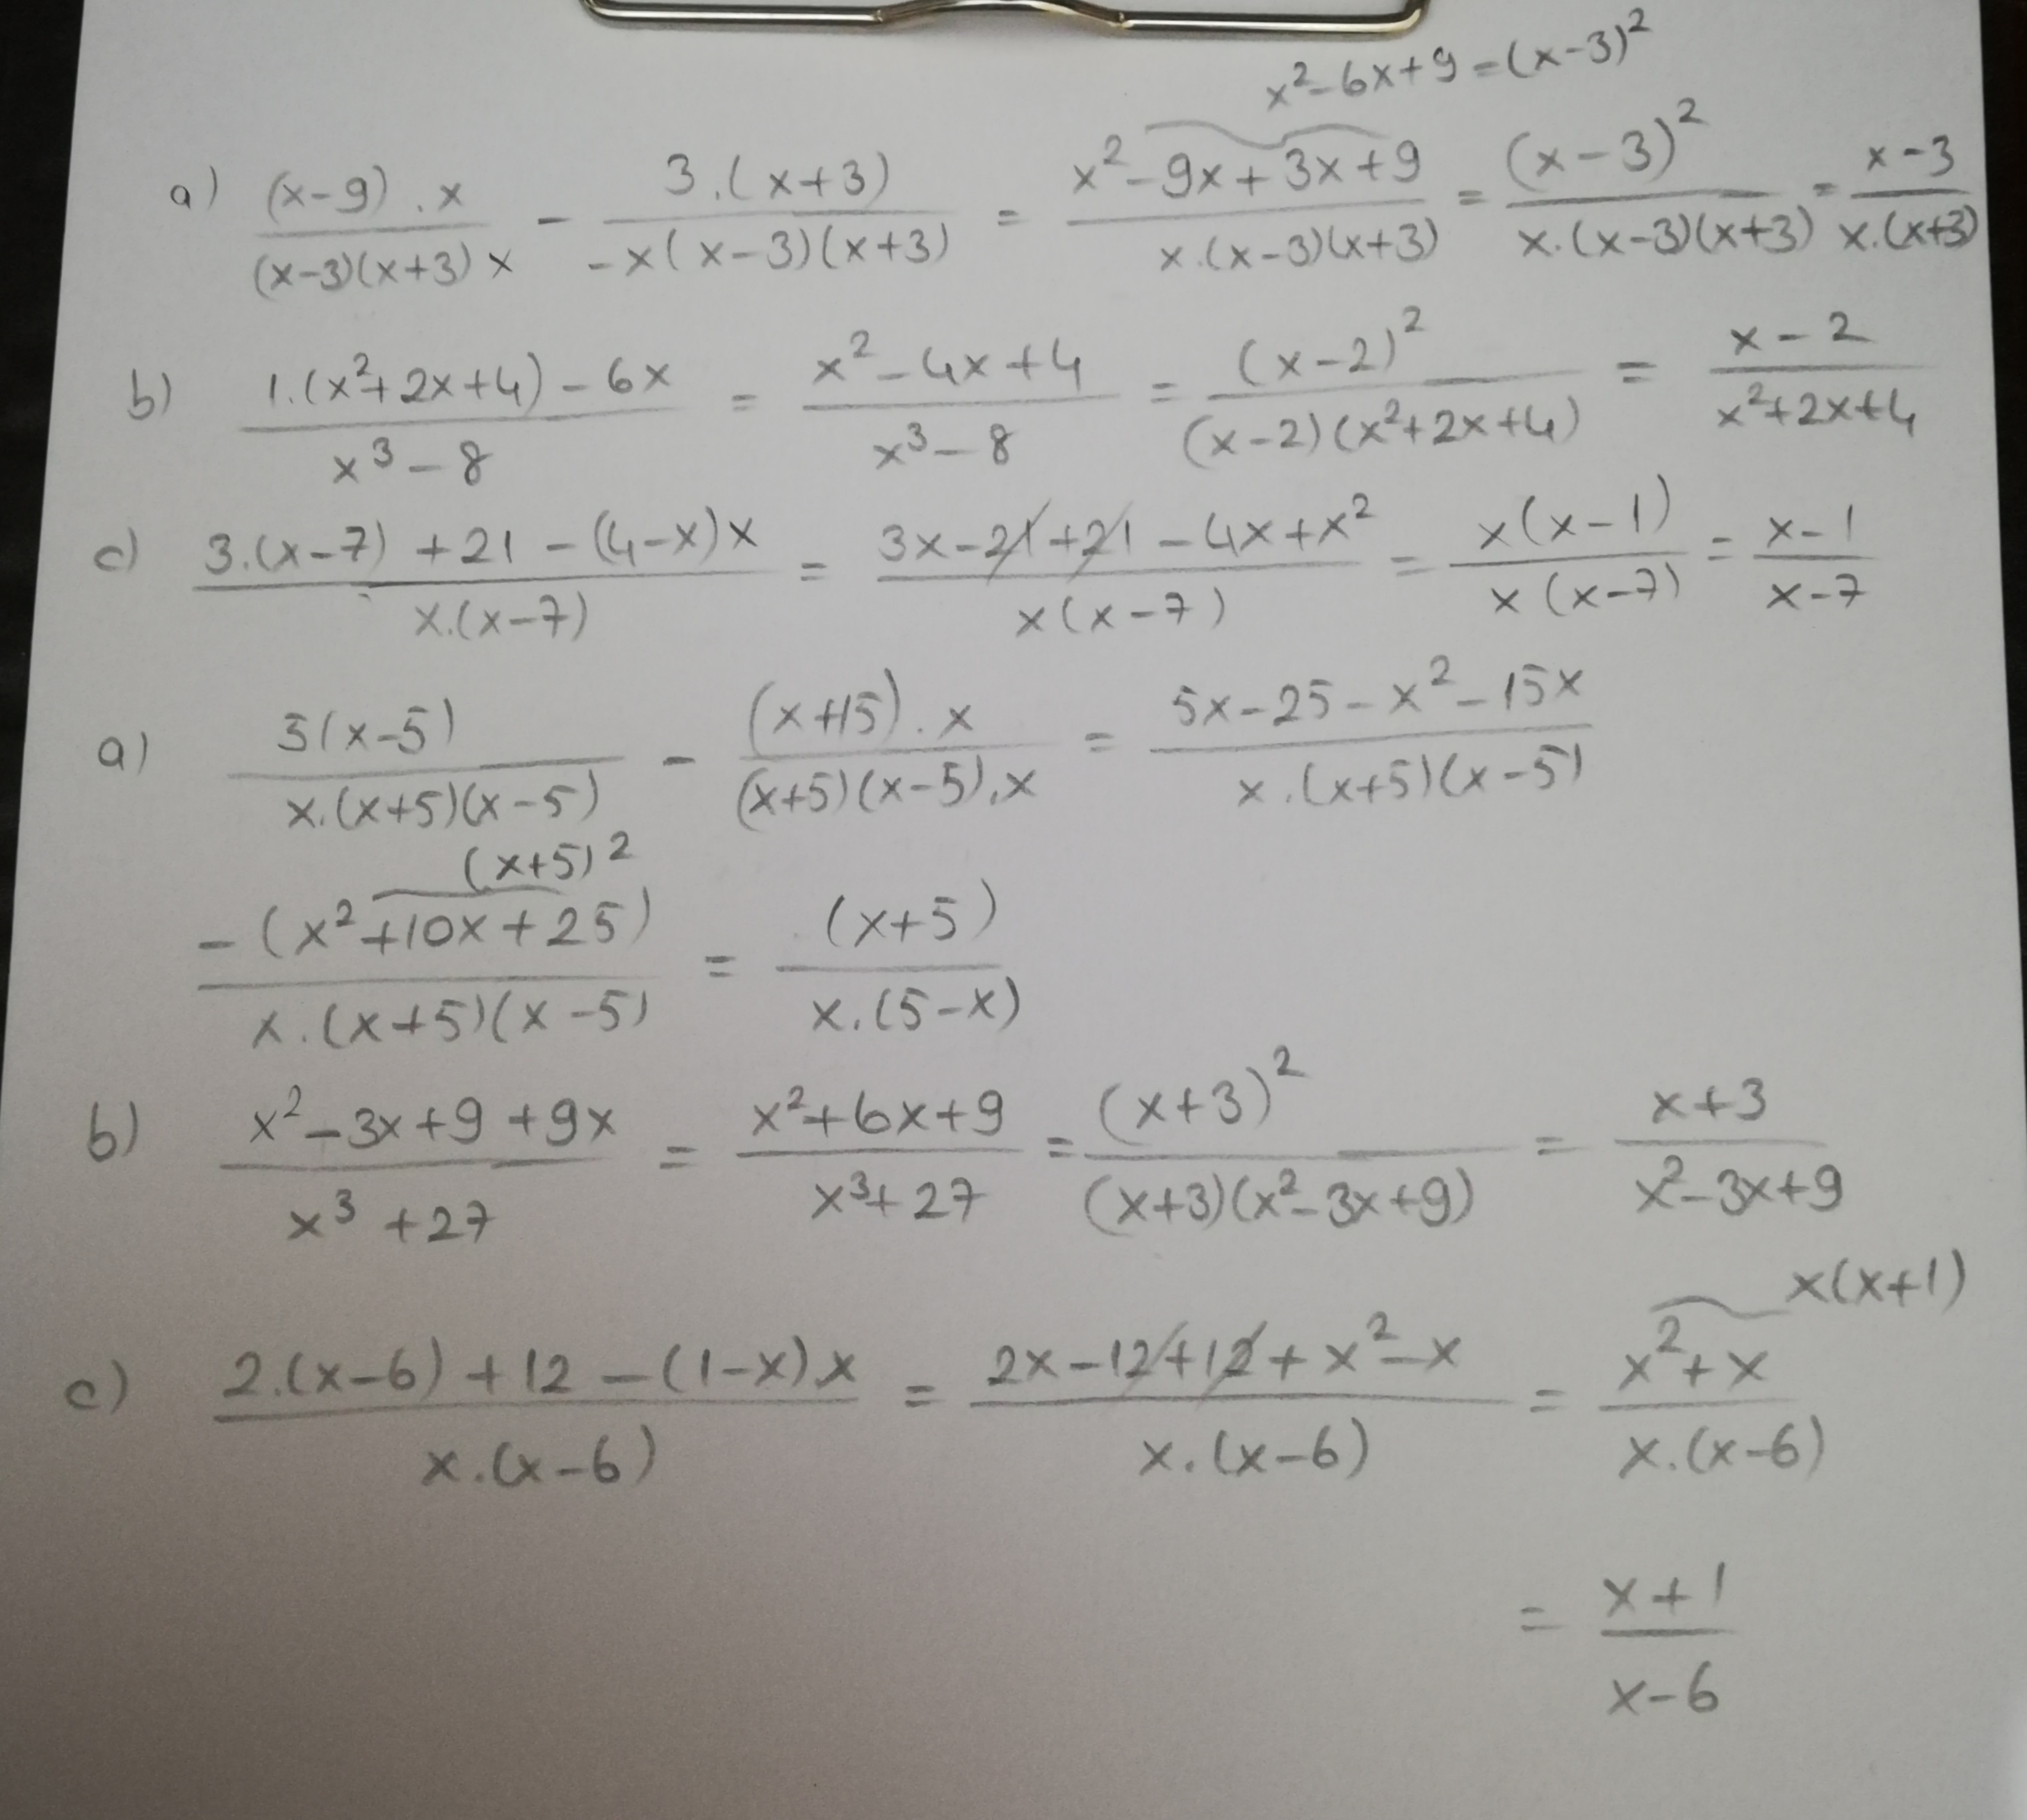 x²-6x+9=(x-3)²
a) (x-9).x / (x-3)(x+3)x - 3.(x+3) / -x(x-3)(x+3) = x²-9x+3x+9 / x.(x-3)(x+3) = (x-3)² / x.(x-3)(x+3) = x-3 / x.(x+3)
b) 1.(x²+2x+4)-6x / x³-8 = x²-4x+4 / x³-8 = (x-2)² / (x-2)(x²+2x+4) = x-2 / x²+2x+4
c) 3.(x-7)+21-(4-x)x / x.(x-7) = 3x-21+21-4x+x² / x(x-7) = x(x-1) / x(x-7) = x-1 / x-7
a) 5(x-5) / x.(x+5)(x-5) - (x+15).x / (x+5)(x-5).x = 5x-25-x²-15x / x.(x+5)(x-5)
(x+5)²
-(x²+10x+25) / x.(x+5)(x-5) = (x+5) / x.(5-x)
b) x²-3x+9+9x / x³+27 = x²+6x+9 / x³+27 = (x+3)² / (x+3)(x²-3x+9) = x+3 / x²-3x+9
x(x+1)
c) 2.(x-6)+12-(1-x)x / x.(x-6) = 2x-12+12+x²-x / x.(x-6) = x²+x / x.(x-6)
= x+1 / x-6